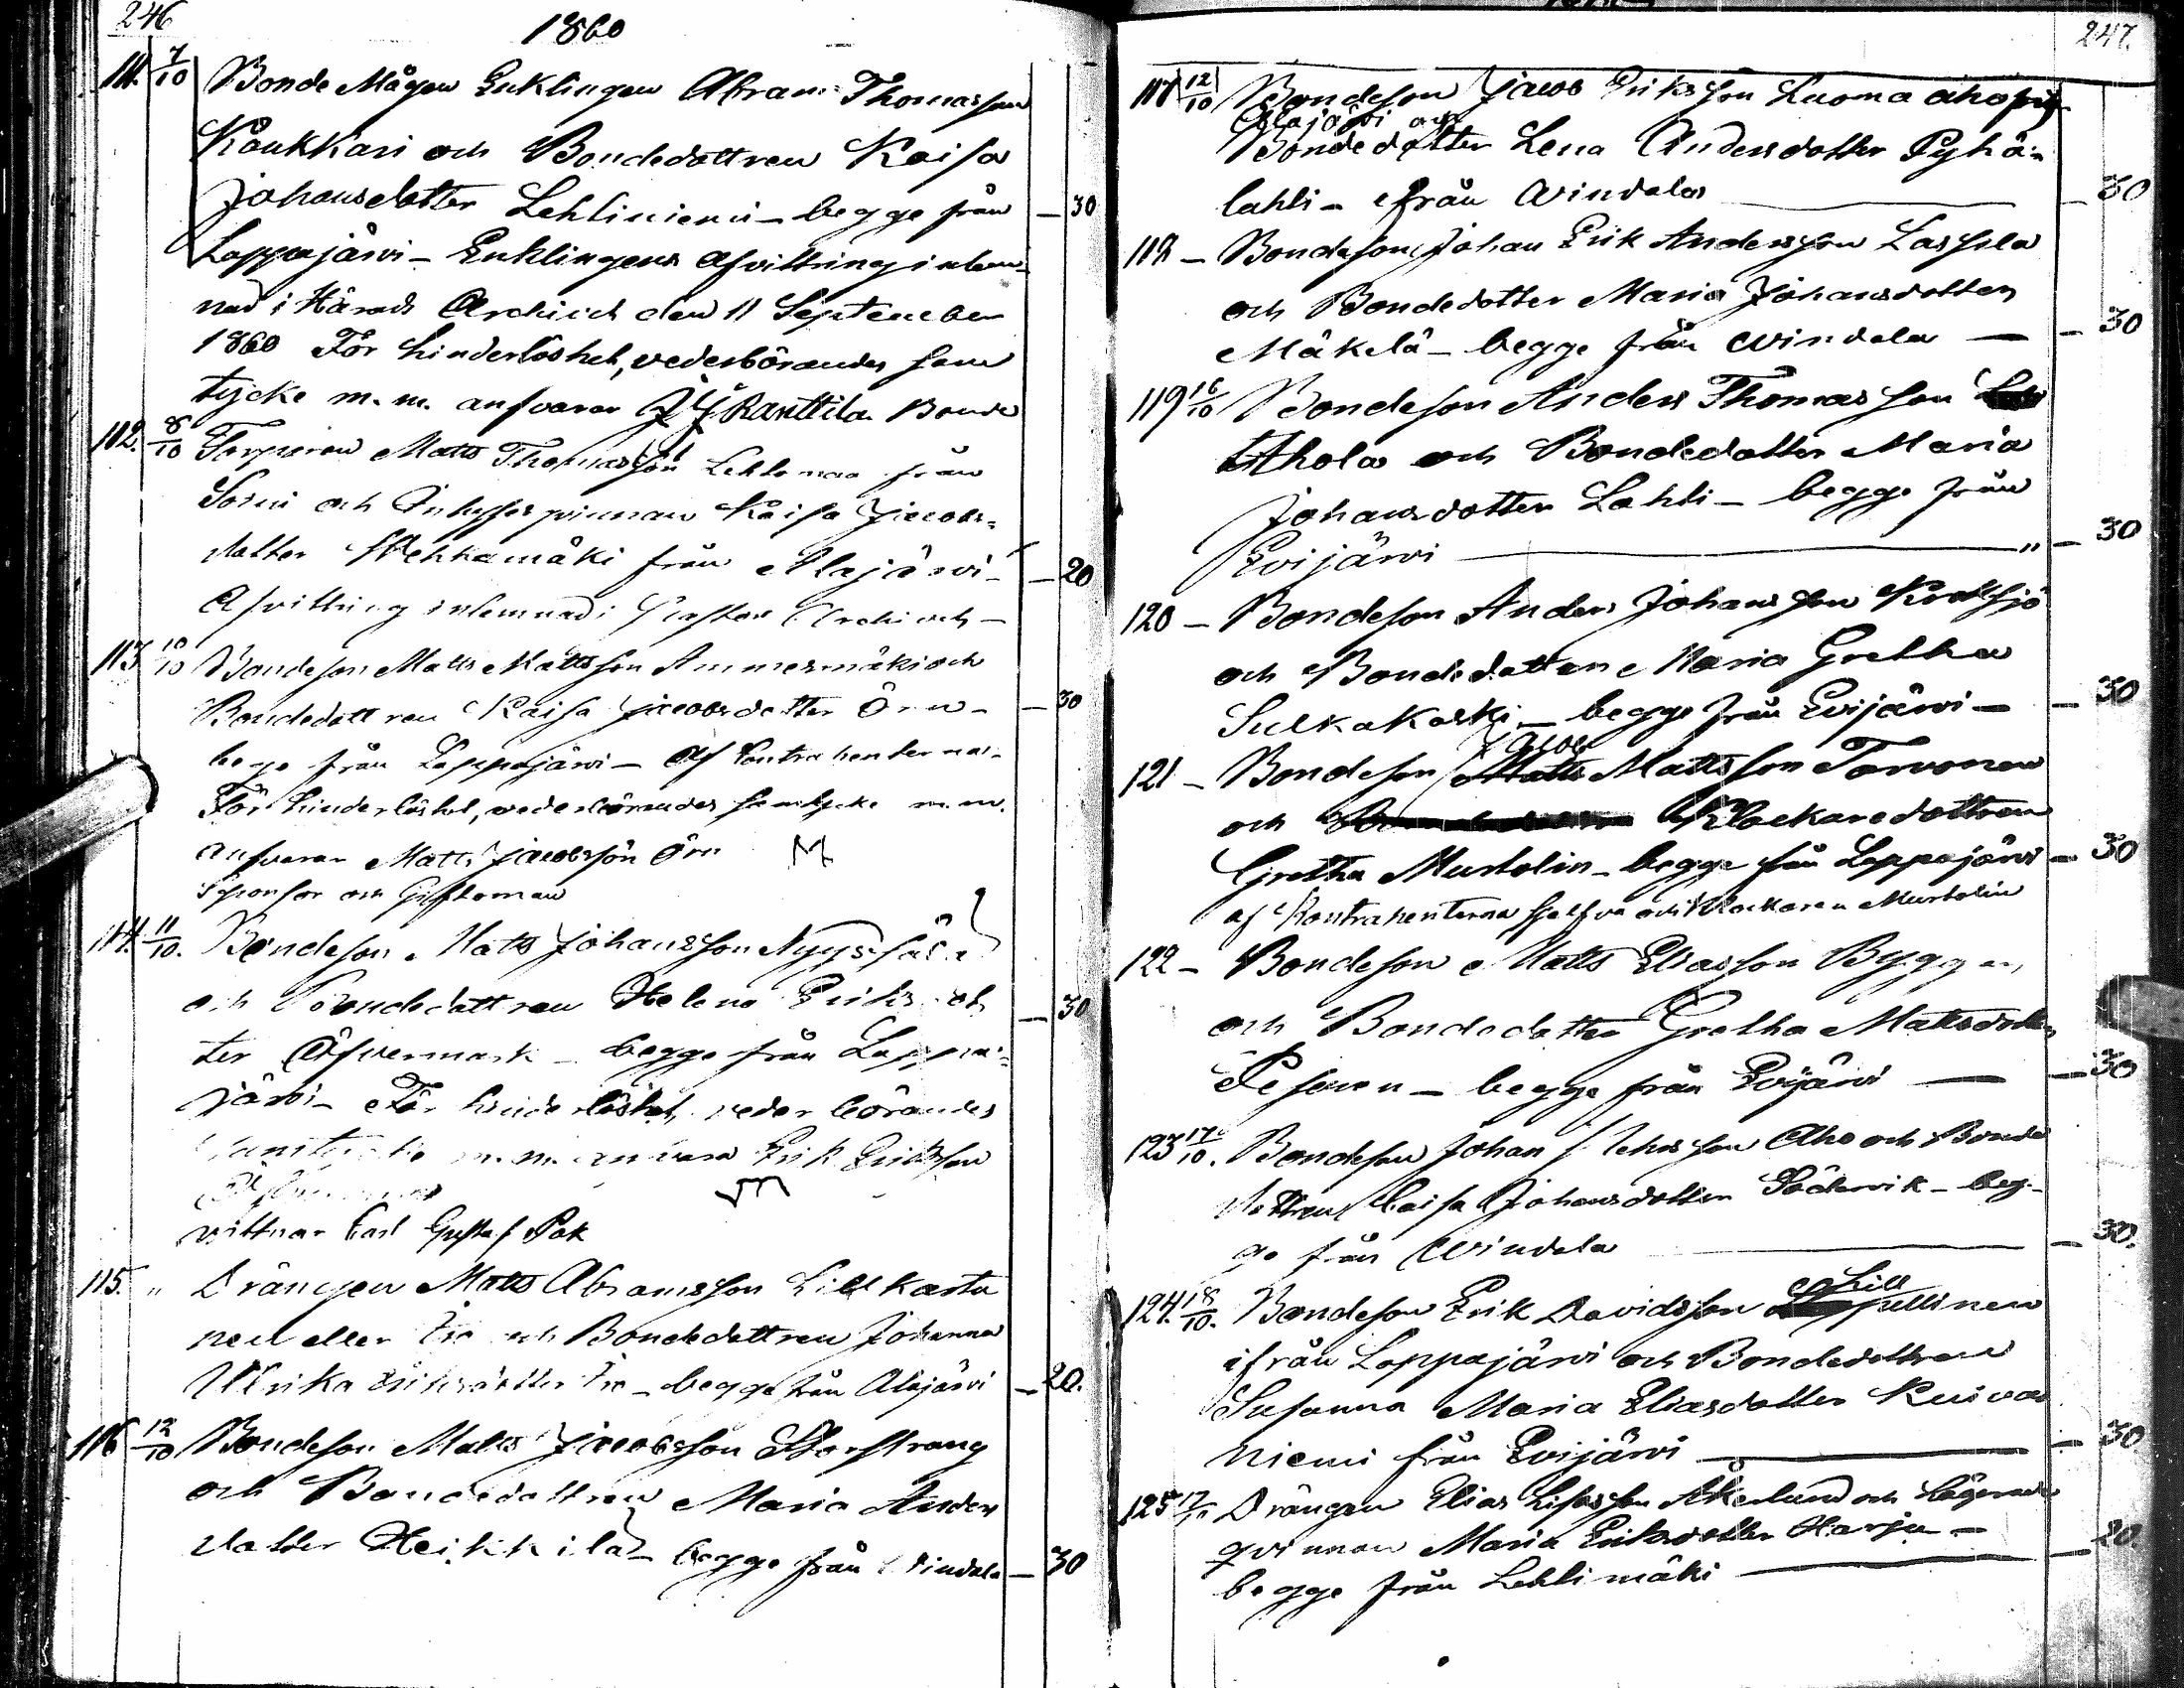 246
1860
111. 7/10 Bonde Mågen Enklingen Abram Thomasson
Kaukkari och Bondedottren Kaisa
Johansdotter Lehliniemi - begge från — 30
Lappajärwi - Enklingens afvittring inlem-
nad i Härads Archivet den 11 September
1860 För hinderlöshet, vederbörandes sam
tycke m. m. ansvarar Ranttila Bonde
112. 8/10 Torparen Matts Thomasson Lehtomaa från
Soini och Inhysespinnan Kaisa Jacobs-
dotter Wehkamäki från Alajärwi - — 20
Afvittring inlemnad i Archivet -
113 10/10 Bondeson Matts Mattsson Ammesmäki och
Bondedottren Kaisa Jacobsdotter Örn - — 30
bege från Lappajärwi - Af Contrahenterna -
För hinderlöshet, vederbörandes samtycke m. m.
ansvarar Matts Jacobsson Örn
Sponsor och Giftoman
114. 11/10. Bondeson Matts Johansson Nyyssälä
och Bondedottren Helena Eriks dot — 30
ter Öfvermark - begge från Lappa-
järwi - För hinderlöshet, veder börandes
samtycke m. m. ansvara Erik Eriksson
vittnar Carl Gustaf Pak
115. " Drängen Matts Abramsson Lill Kasta
nen eller och Bondedottren Johanna
Ulrika Eriksdotter - begge från Alajärwi — 20.
116 12/10 Bondeson Matts Jacobsson Storstrang
och Bondedottren Maria Anders
dotter Heikkilä - begge från Windala — 30
247.
117 12/10 Bondeson Jacob Eriksson Luoma aho från
Alajärwi och
Bondedotter Lena Andersdotter Pyhä-
lahti - från Windala — 30
118 - Bondeson Johan Erik Andersson Lassila
och Bondedotter Maria Johansdotter
Mäkelä - begge från Windala — 30
119 16/10 Bondeson Anders Thomasson
Ahola och Bondedotter Maria
Johansdotter Lahti - begge från
Evijärwi " — 30
120 - Bondeson Anders Johansson Kortesjö
och Bondedottren Maria Gretha
Sulkakoski - begge från Evijärwi — 30
Jacob
121 - Bondeson Matts Mattsson Torvonen
och Klockaredottren
Gretha Murtolin - begge från Lappajärwi — 30
af Kontrahenterna sjelfva och Klockaren Murtolin
122 - Bondeson Matts Eliasson Byggar
och Bondedotter Gretha Mattsdotter
Pesonen - begge från Evijärwi — 30
123 17/10. Bondeson Johan Johansson Aho och Bonde
dottren Caisa Johansdotter Södervik - beg-
ge från Windala — 30.
Lill
124. 18/10. Bondeson Erik Davidsson pellinen
ifrån Lappajärwi och Bondedottren
Susanna Maria Eliasdotter Kuivas
niemi från Evijärwi — 30
125 Drängen Elias Åkerlund och Lägrade
qvinnan Maria Eriksdotter Harju -
begge från Lehtimäki — 20.